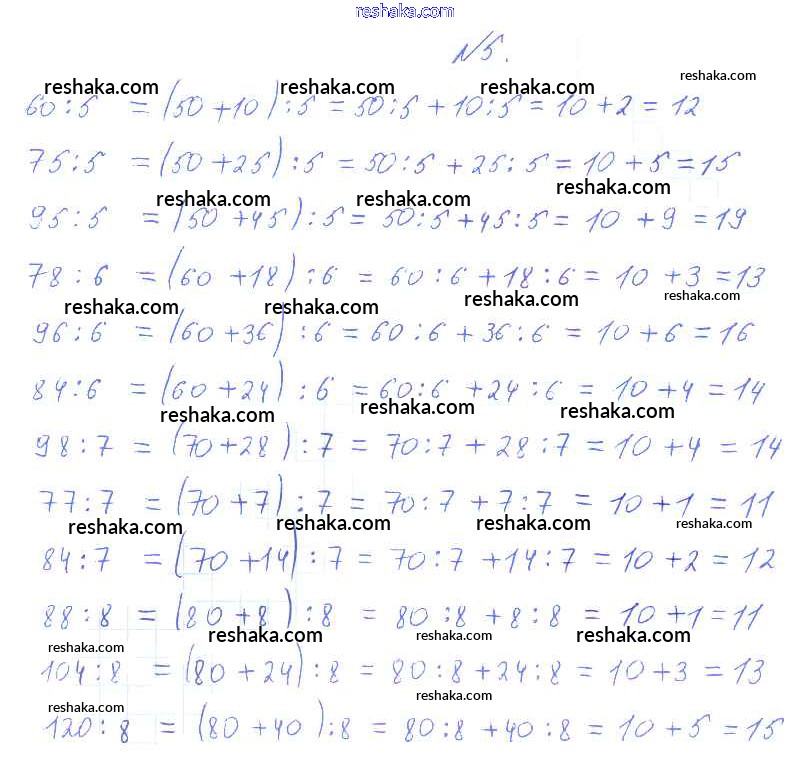 reshaka.com
№5.
reshaka.com reshaka.com reshaka.com
60:5 = (50+10):5 = 50:5 + 10:5 = 10+2 = 12
75:5 = (50+25):5 = 50:5 + 25:5 = 10+5 = 15
reshaka.com reshaka.com reshaka.com
95:5 = (50+45):5 = 50:5 + 45:5 = 10+9 = 19
78:6 = (60+18):6 = 60:6 + 18:6 = 10+3 = 13
reshaka.com reshaka.com reshaka.com reshaka.com
96:6 = (60+36):6 = 60:6 + 36:6 = 10+6 = 16
84:6 = (60+24):6 = 60:6 + 24:6 = 10+4 = 14
reshaka.com reshaka.com reshaka.com
98:7 = (70+28):7 = 70:7 + 28:7 = 10+4 = 14
77:7 = (70+7):7 = 70:7 + 7:7 = 10+1 = 11
reshaka.com reshaka.com reshaka.com reshaka.com
84:7 = (70+14):7 = 70:7 + 14:7 = 10+2 = 12
88:8 = (80+8):8 = 80:8 + 8:8 = 10+1 = 11
reshaka.com reshaka.com reshaka.com reshaka.com
104:8 = (80+24):8 = 80:8 + 24:8 = 10+3 = 13
reshaka.com reshaka.com
120:8 = (80+40):8 = 80:8 + 40:8 = 10+5 = 15